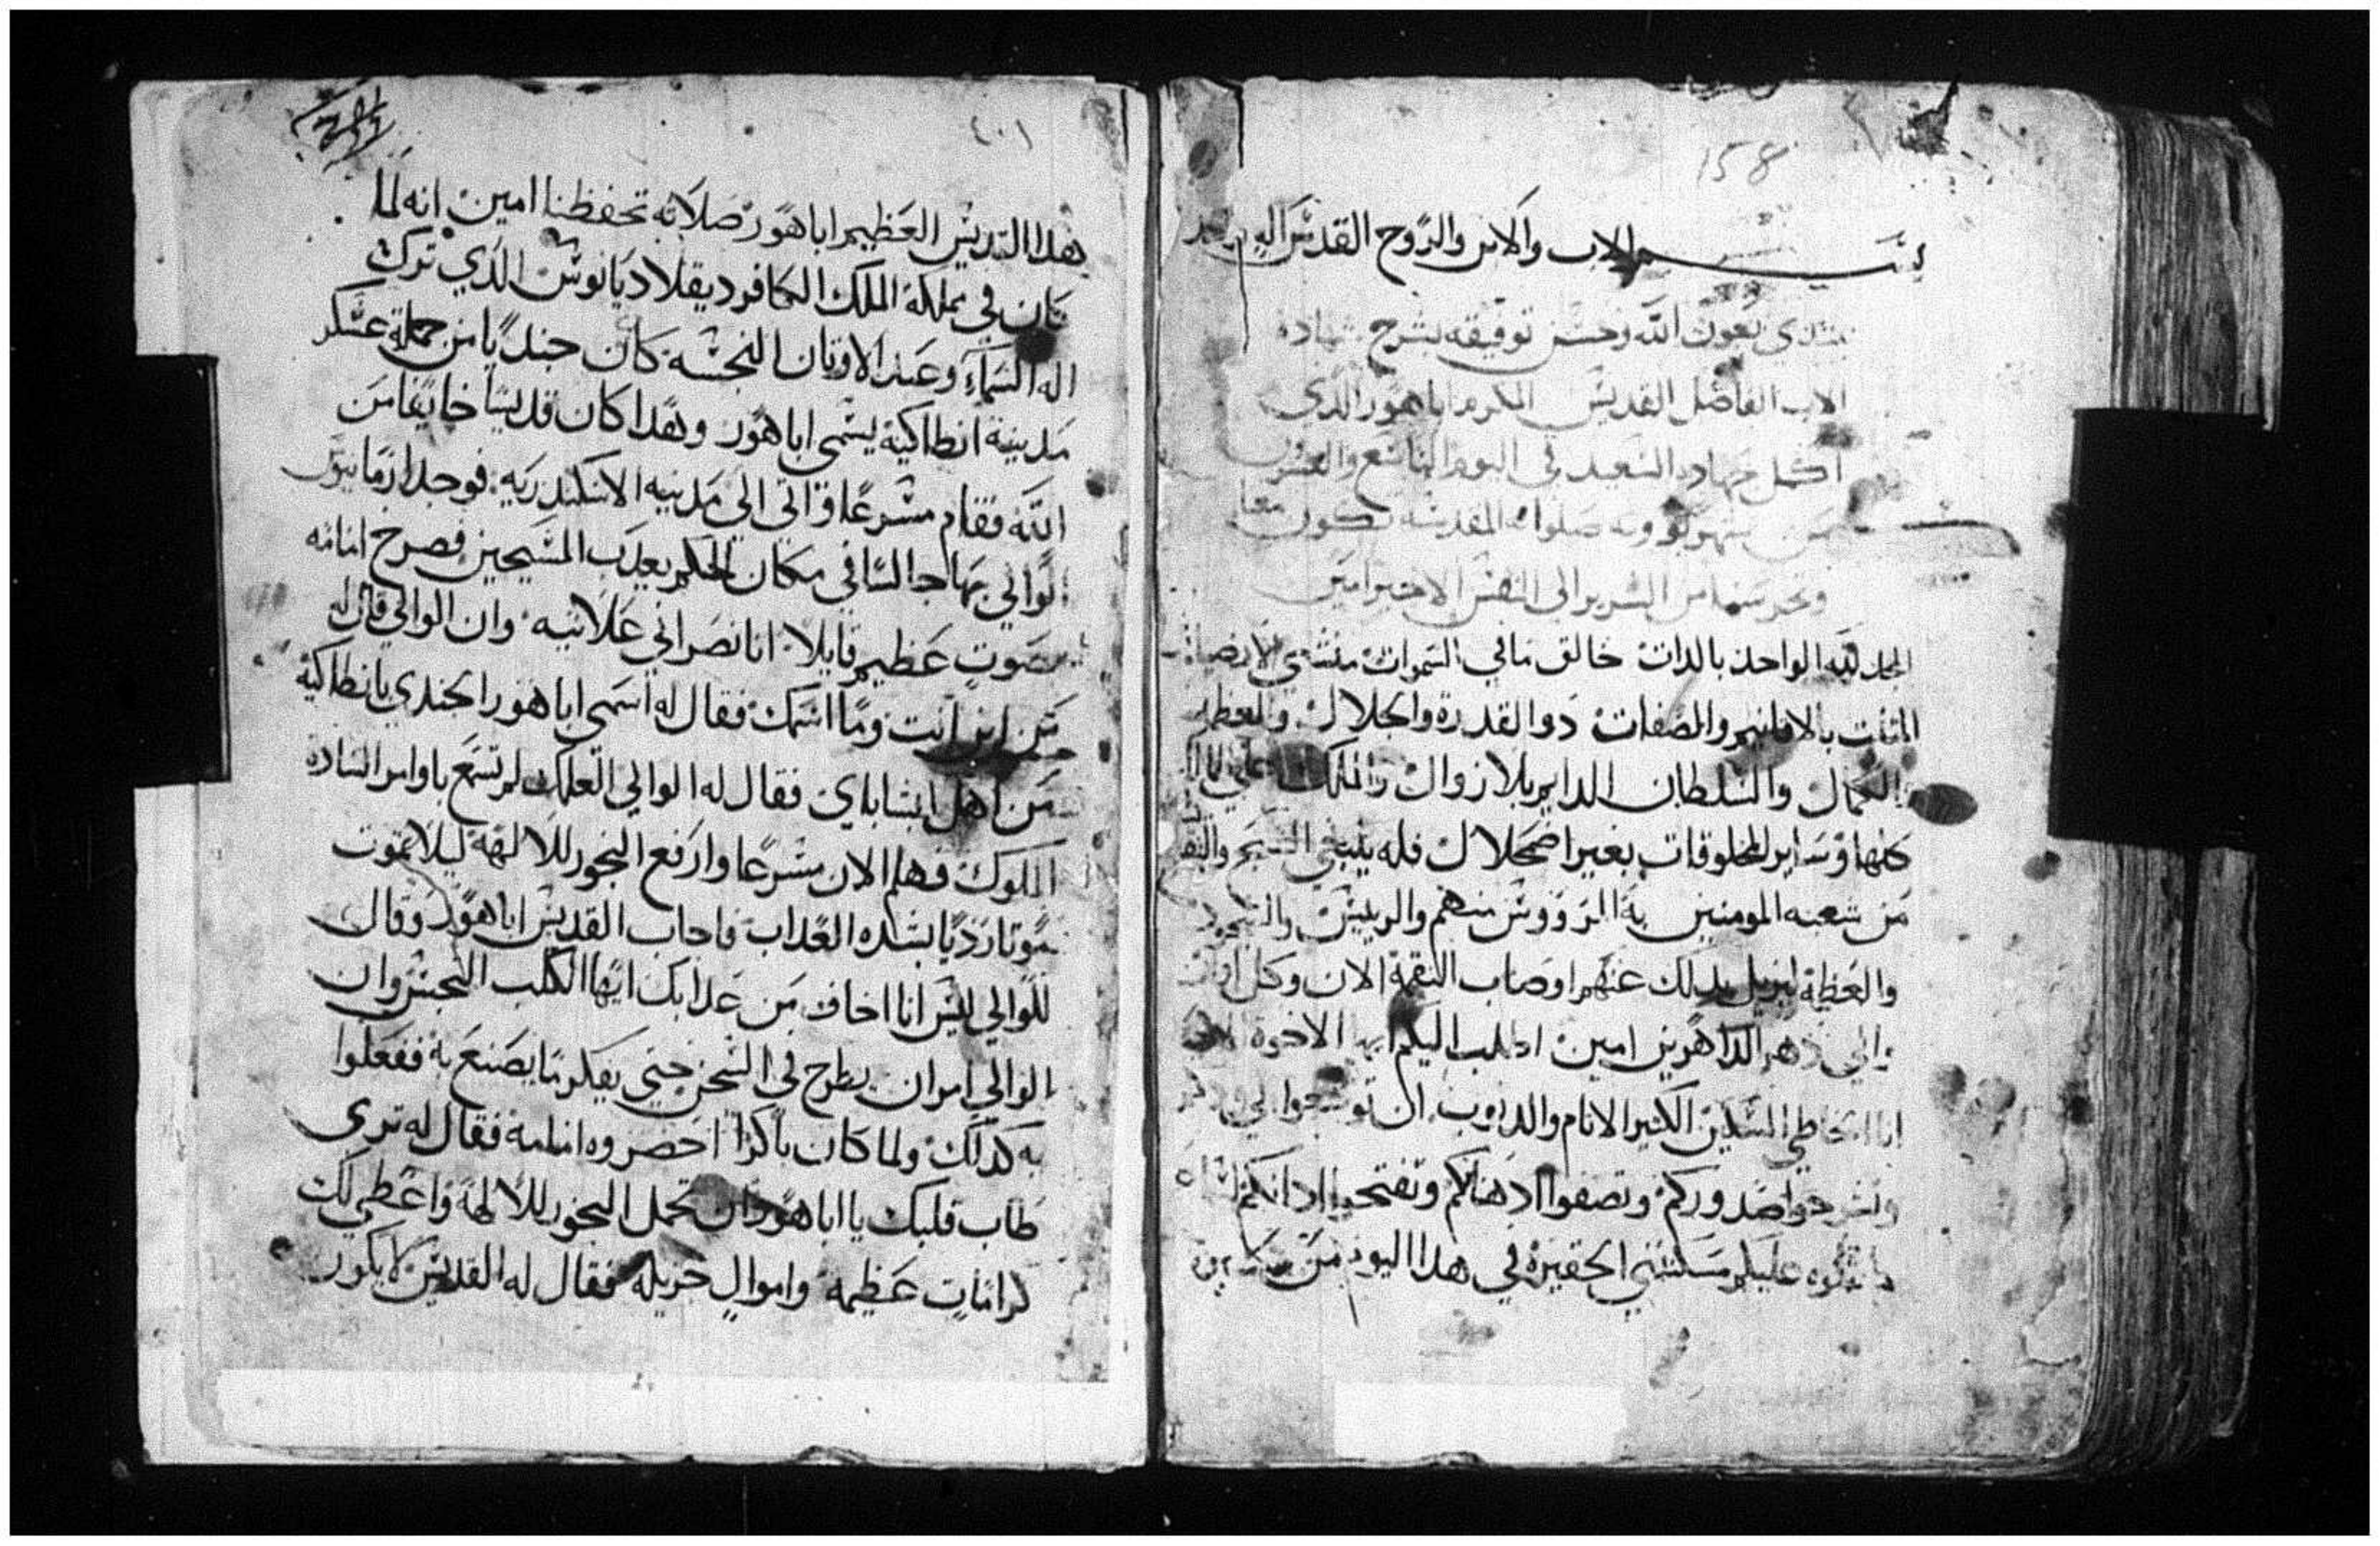 158
بسم الاب والابن والروح القدس اله واحد
نبتدي بعون الله وحسن توفيقه بشرح شهادة
الاب الفاضل القديس المكرم اباهور الذي
اكمل جهاده السعيد في اليوم التاسع والعشرين
من شهر بوونه صلواته المقدسه تكون معنا
وتحرسنا من الشرير الى النفس الاخير امين
المجد لله الواحد بالدات خالق ما في السموات منشي الارضيات
المثلث بالاقانيم والصفات دو القدرة والجلال والعظمة
والكمال والسلطان الدايم بلا زوال والملك علي
كلها وساير المخلوقات بغير اضمحلال فله ينبغي التسبيح والتقديس
من شعبه المومنين به الروؤس منهم والريسين والسجود
والعظمة ليزيل بدلك عنهم اوصاب النقمة الان وكل اوان
والي دهر الداهرين امين اطلب اليكم ايها الاخوة
انا الخاطي المسكين الكثير الاثام والدنوب ان توسعوا لي
وتشرحوا صدوركم وتصفوا ادهانكم وتفتحوا ادانكم لسماع
ما تتلوه عليكم مسكنتي الحقيرة في هدا اليوم من
٢٠١
هدا القديس العظيم اباهور صلاته تحفظنا امين انه لما
كان في مملكة الملك الكافر ديقلاديانوس الدي ترك
اله السماء وعبد الاوتان النجسه كان جنديا من جملة عسكر
مدينة انطاكية يسمي اباهور وهدا كان قديسا خايفا من
الله فقام مسرعا واتي الي مدينه الاسكندريه فوجد ارمانيوس
الوالي بها جالسا في مكان الحكم يعدب المسيحين فصرخ امامه
بصوت عظيم قايلا انا نصراني علانيه وان الوالي قال له
من اين انت وما اسمك فقال له اسمي اباهور الجندي بانطاكية
من اهل ابشاباي فقال له الوالي العلك لم تسمع باوامر السادة
الملوك فهلم الان مسرعا وارفع البخور للالهة ليلا تموت
موتا رديا بشده العداب فاجاب القديس اباهور وقال
للوالي ليس انا اخاف من عدابك ايها الكلب النجس وان
الوالي امر ان يطرح في السجن حتي يفكر ما يصنع به ففعلوا
به كدلك ولما كان باكرا احضروه امامه فقال له تري
طاب قلبك يا اباهور ان تحمل البخور للالهة واعطي لك
كرامات عظيمه واموال جزيله فقال له القديس لا يكون